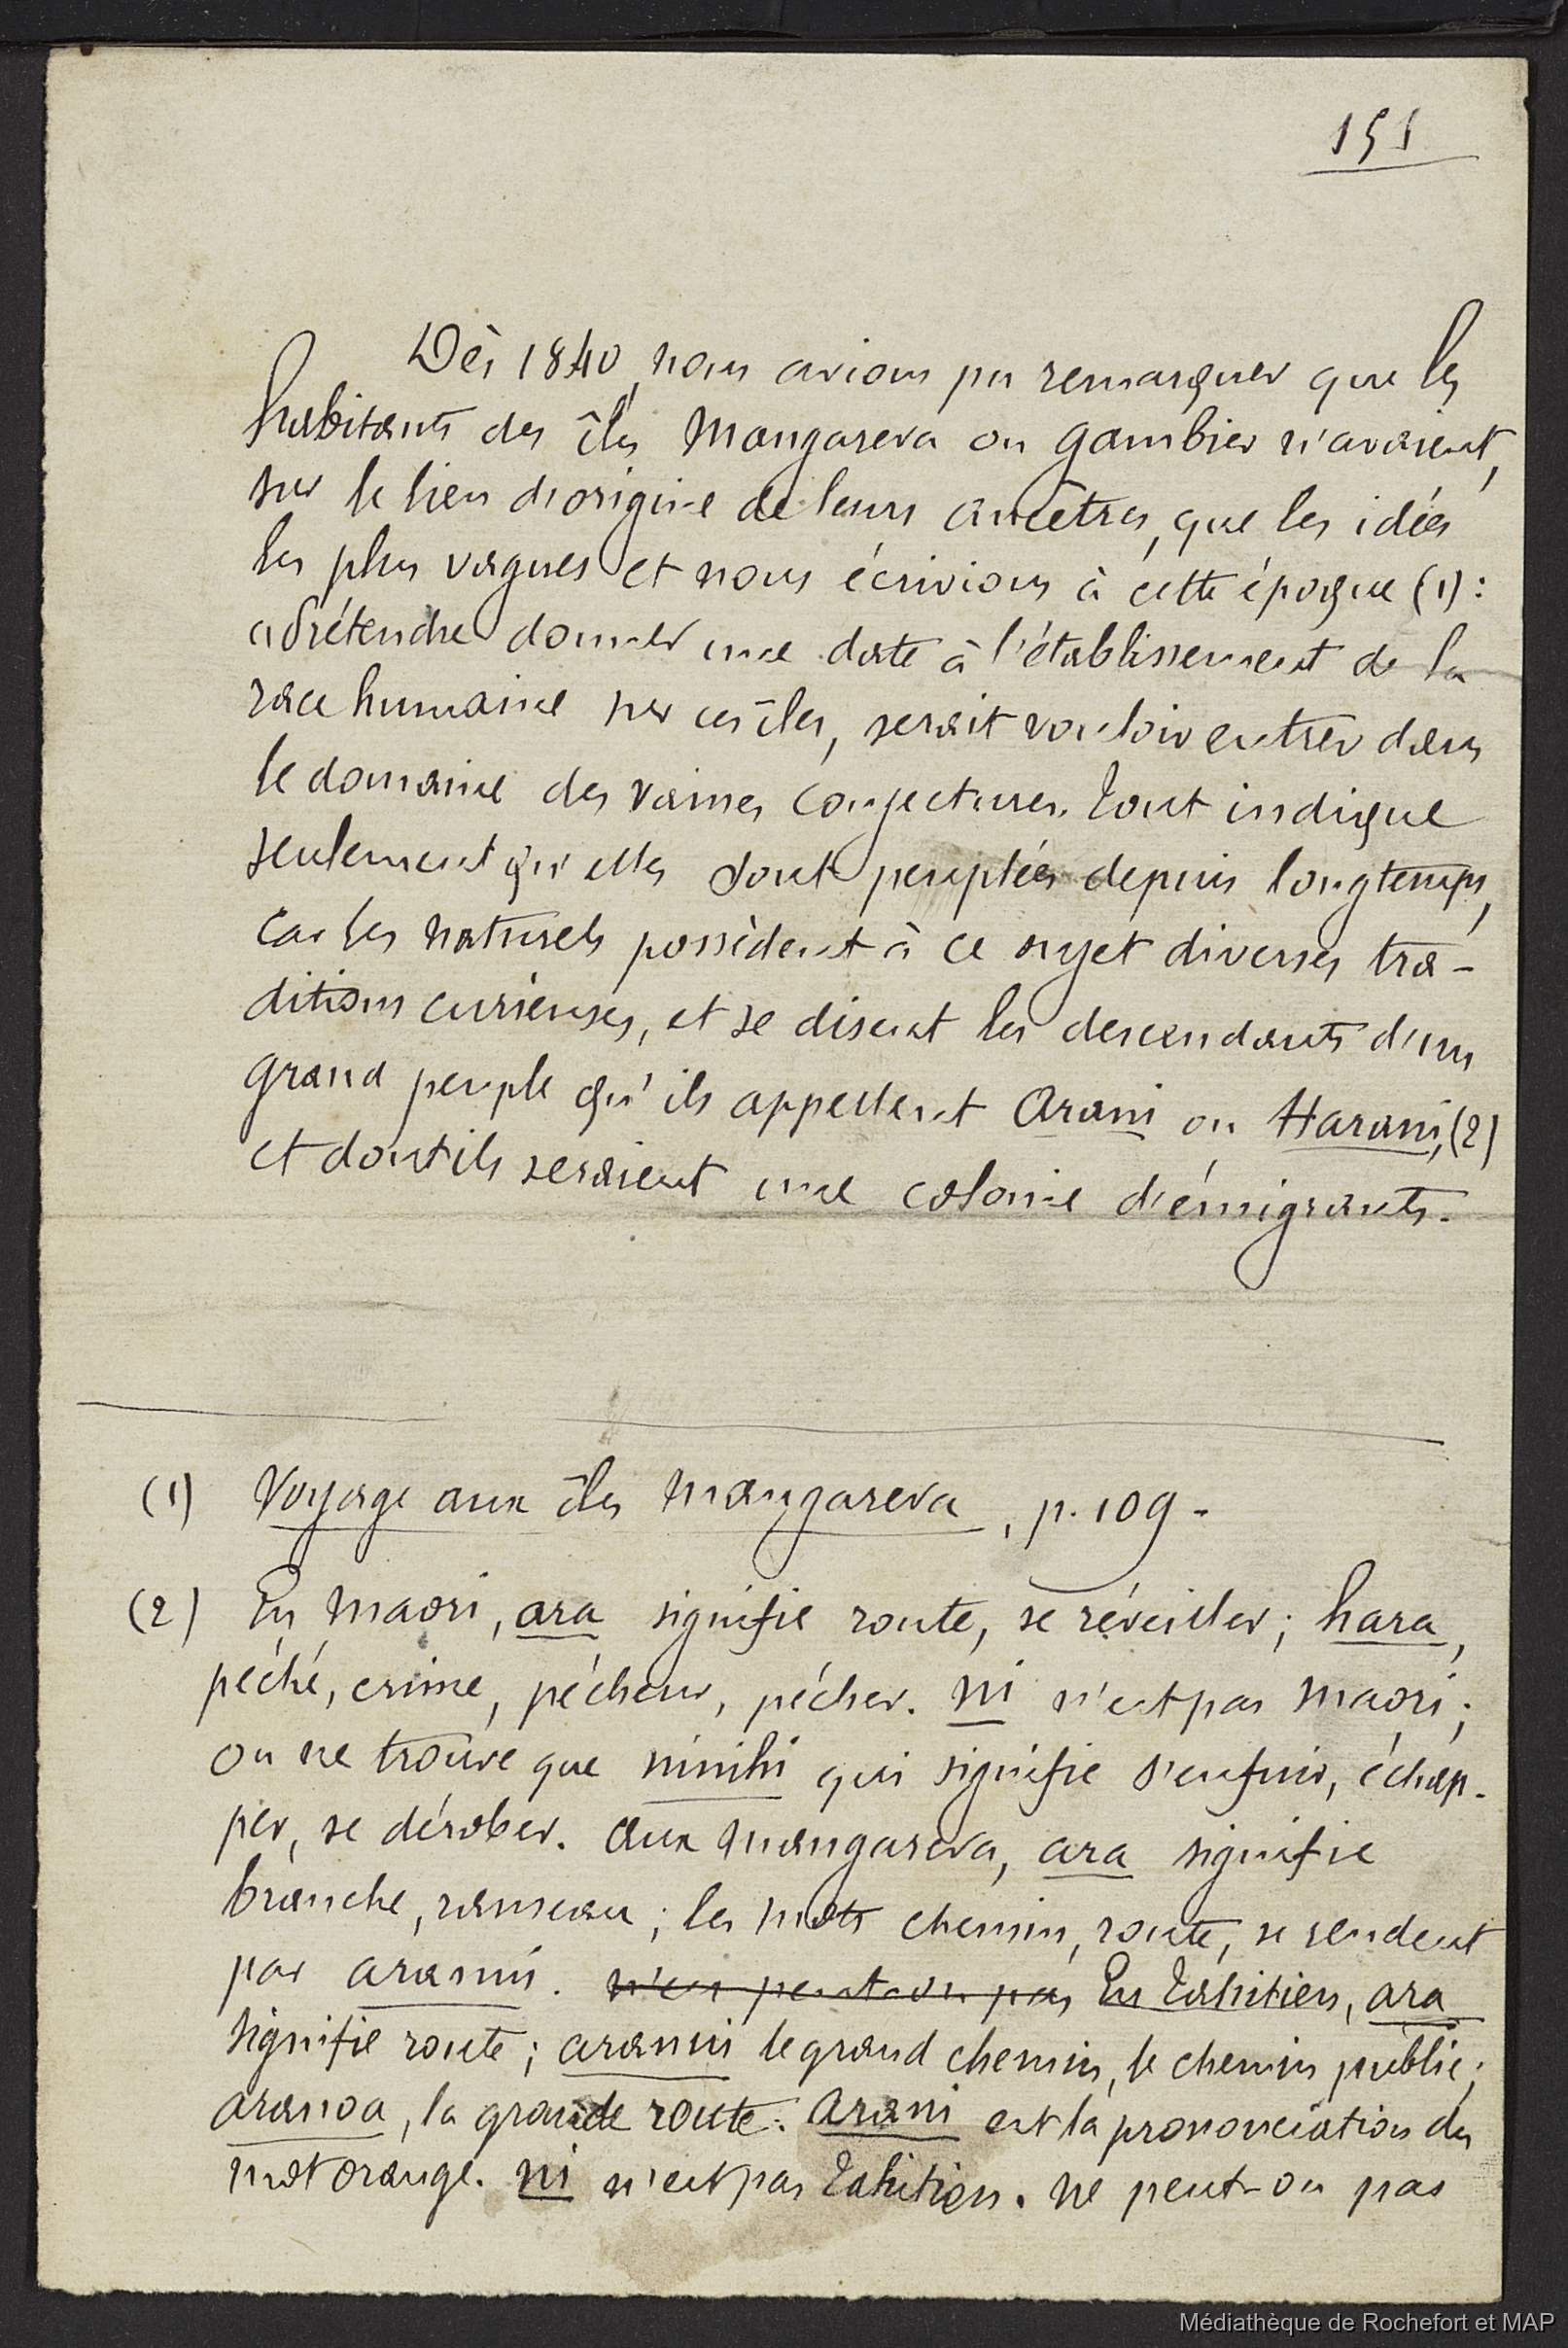 151
Dès 1840, nous avions pu remarquer que les
habitants des îles Mangareva ou Gambier n'avaient,
sur le lieu d'origine de leurs ancêtres, que les idées
les plus vagues et nous écrivions à cette époque (1) :
« Prétendre donner une date à l'établissement de la
race humaine sur ces îles, serait vouloir entrer dans
le domaine des vaines conjectures. Tout indique
seulement qu'elles sont peuplées depuis longtemps,
car les naturels possèdent à ce sujet diverses tra-
ditions curieuses, et se disent les descendants d'un
grand peuple qu'ils appellent Arani ou Harani, (2)
et dont ils seraient une colonie d'émigrants.
(1) Voyage aux îles Mangareva, p. 109 -
(2) En maori, ara signifie route, se réveiller ; hara,
péché, crime, pécheur, pécher. Ni n'est pas maori ;
on ne trouve que ninihi qui signifie s'enfuir, échap-
per, se dérober. Aux Mangareva, ara signifie
branche, rameau ; les mots chemin, route, se rendent
par aranui. n'en peut-on pas En Tahitien, ara
signifie route ; aranui le grand chemin, le chemin public ;
aranoa, la grande route. Arani est la prononciation du
mot orange. Ni n'est pas Tahitien. Ne peut-on pas
Médiathèque de Rochefort et MAP